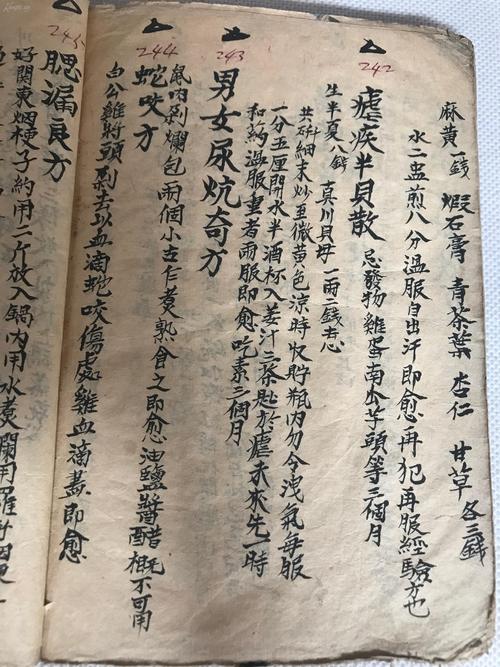 麻黄一錢 煅石膏 青茶葉 杏仁 甘草 各三錢
水二盅煎八分溫服自出汗即愈再犯再服經驗方也
242
瘧疾半貝散 忌發物雞蛋南瓜芋頭等三個月
生半夏八錢 真川貝母一兩二錢去心
共研細末炒至微黄色涼時收貯瓶内勿令洩氣每服
一分五厘開水半酒杯入姜汁三茶匙於瘧未來先一時
和药溫服重者兩服即愈吃素三個月
243
男女尿炕奇方
鼠肉剁爛包兩個小古乍煮熟食之即愈油鹽醬醋概不可用
244
蛇咬方
白公雞將頭剁去以血滴蛇咬傷處雞血滴盡即愈
245
腮漏良方
好関東烟梗子約用二斤放入鍋内用水煮爛用羅